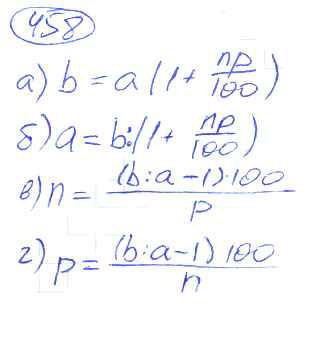 458
а) b = a (1 + np/100)
б) a = b:(1 + np/100)
в) n = (b:a-1)·100/p
г) p = (b:a-1) 100/n